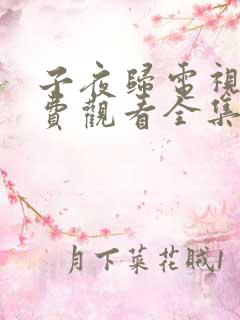 子夜歸電視
費觀看全集
月下菜花賊1